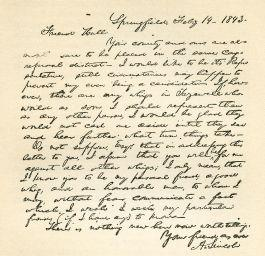 Springfield, Feby 14 - 1843.
Friend Hull
Your county and ours are al-
most sure to be placed in the same Cong-
ressional district - I would like to be its Repre-
sentative; still circumstances may happen to
prevent my even being a candidate. If, how-
ever, there are any whigs in Tazewell who
would as soon I should represent them
as any other person, I would be glad they
would not cast me aside until they see
and hear further what turn things take.
Do not suppose, Esqr. that in addressing this
letter to you, I assume that you will be for me
against all other whigs; I only mean, that
I know you to be my personal friend, a good
whig, and an honorable man, to whom I
may, without fear, communicate a fact
which I wish my particular
friends (if I have any) to know.
There is nothing new here now worth telling.
Your friend, as ever
A. Lincoln